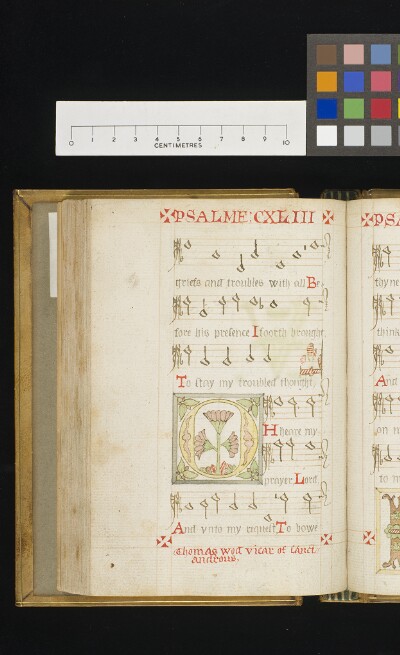 0 1 2 3 4 5 6 7 8 9 10
CENTIMETRES
PSALME: CXLIII
griefs and troubles with all Be
fore his presence I foorth brought
To stay my troubled thought.
O Heare my
prayer Lord
And vnto my request To bowe
Thomas wod vicar of sanct
androus.
PSA
thyne
think
And
on m
to m